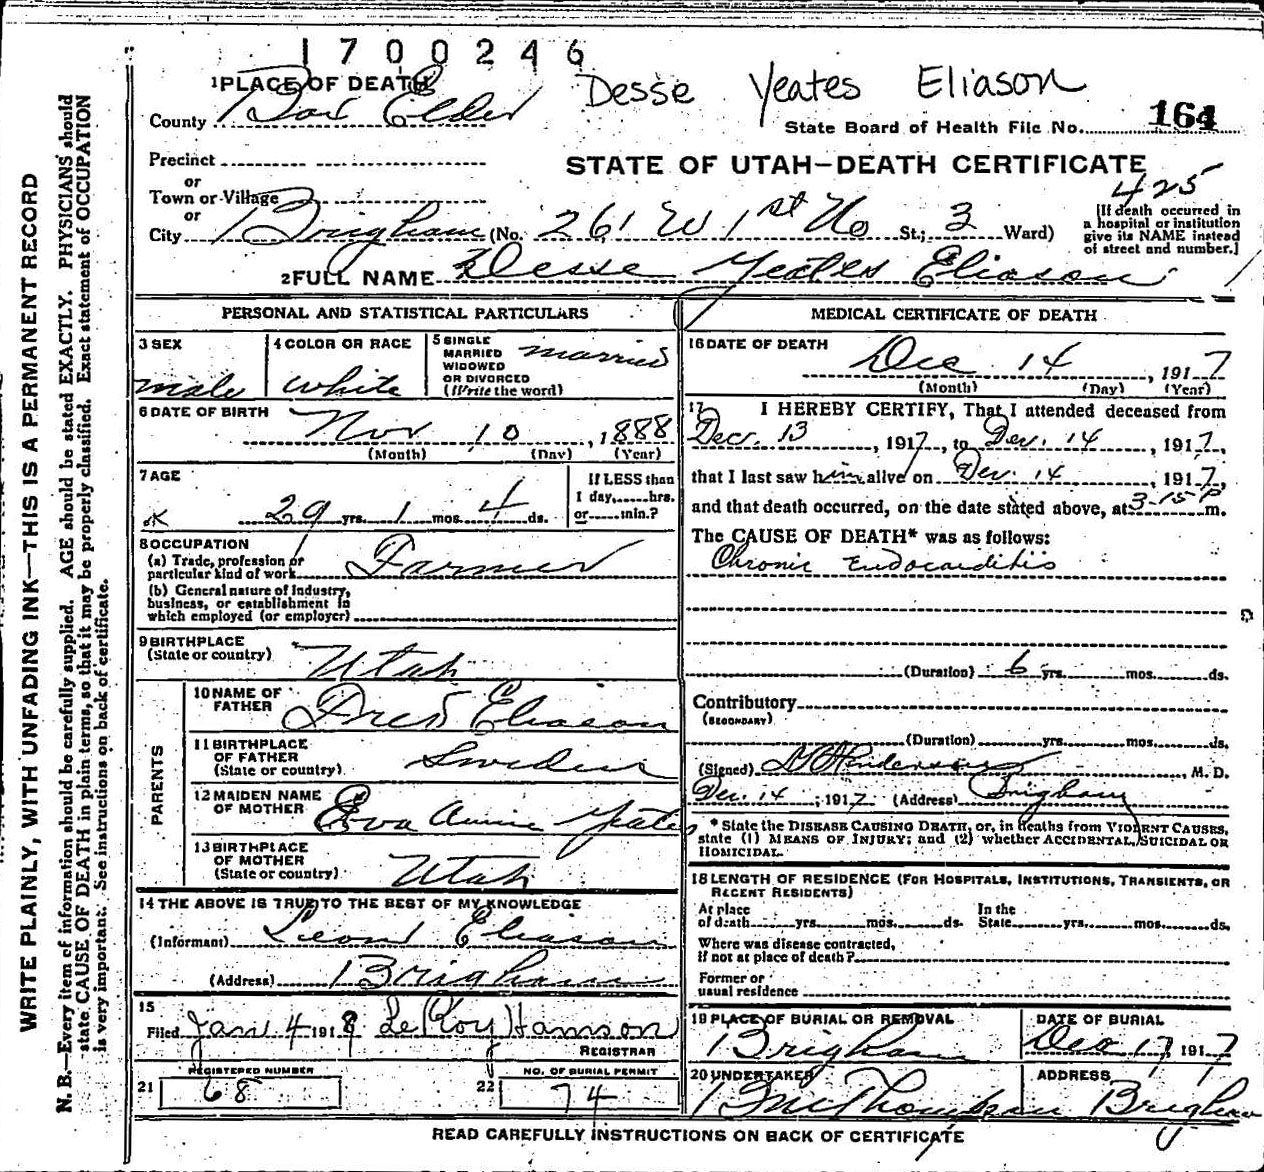 1700246
Desse Yeates Eliason
1 PLACE OF DEATH
County Box Elder
State Board of Health File No. 164
Precinct
STATE OF UTAH—DEATH CERTIFICATE
or
Town or Village
425
or
City Brigham (No. 261 W 1st No St.; 3 Ward)
[If death occurred in a hospital or institution give its NAME instead of street and number.]
2 FULL NAME Desse Yeates Eliason
PERSONAL AND STATISTICAL PARTICULARS
3 SEX
male
4 COLOR OR RACE
white
5 SINGLE MARRIED WIDOWED OR DIVORCED (Write the word)
married
6 DATE OF BIRTH
Nov 10, 1888
(Month) (Day) (Year)
7 AGE
OK 29 yrs. 1 mos. 4 ds.
If LESS than
1 day,......hrs.
or......min.?
8 OCCUPATION
(a) Trade, profession or
particular kind of work Farmer
(b) General nature of Industry,
business, or establishment in
which employed (or employer)
9 BIRTHPLACE
(State or country) Utah
PARENTS
10 NAME OF
FATHER Fred Eliason
11 BIRTHPLACE
OF FATHER
(State or country) Sweden
12 MAIDEN NAME
OF MOTHER Eva Annie Yeates
13 BIRTHPLACE
OF MOTHER
(State or country) Utah
14 THE ABOVE IS TRUE TO THE BEST OF MY KNOWLEDGE
(Informant) Leon Eliason
(Address) Brigham
15
Filed Jan 4 1918 LeRoy Hamson
REGISTRAR
REGISTERED NUMBER
21 68
NO. OF BURIAL PERMIT
22 74
MEDICAL CERTIFICATE OF DEATH
16 DATE OF DEATH
Dec 14, 1917
(Month) (Day) (Year)
17 I HEREBY CERTIFY, That I attended deceased from
Dec. 13, 1917, to Dec. 14, 1917,
that I last saw him alive on Dec. 14, 1917,
and that death occurred, on the date stated above, at 3-15 P m.
The CAUSE OF DEATH* was as follows:
Chronic Endocarditis
(Duration) 6 yrs. mos. ds.
Contributory
(SECONDARY)
(Duration) yrs. mos. ds.
(Signed) Henderson, M. D.
Dec. 14, 1917 (Address) Brigham
* State the DISEASE CAUSING DEATH, or, in deaths from VIOLENT CAUSES,
state (1) MEANS OF INJURY; and (2) whether ACCIDENTAL, SUICIDAL OR
HOMICIDAL.
18 LENGTH OF RESIDENCE (FOR HOSPITALS, INSTITUTIONS, TRANSIENTS, OR
RECENT RESIDENTS)
At place
of death......yrs......mos......ds.
In the
State......yrs......mos......ds.
Where was disease contracted,
if not at place of death?
Former or
usual residence
19 PLACE OF BURIAL OR REMOVAL
Brigham
DATE OF BURIAL
Dec 17, 1917
20 UNDERTAKER
Thompson
ADDRESS
Brigham
READ CAREFULLY INSTRUCTIONS ON BACK OF CERTIFICATE
WRITE PLAINLY, WITH UNFADING INK—THIS IS A PERMANENT RECORD
N. B.—Every item of information should be carefully supplied. AGE should be stated EXACTLY. PHYSICIANS should
state CAUSE OF DEATH in plain terms, so that it may be properly classified. Exact statement of OCCUPATION
is very important. See instructions on back of certificate.